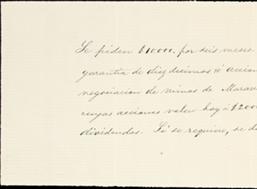 Se piden $10000. por seis meses
garantia de diez decimos ó accion
negociacion de minas de Marav
cuyas acciones valen hoy á $200
dividendos. Si se requiere, se d